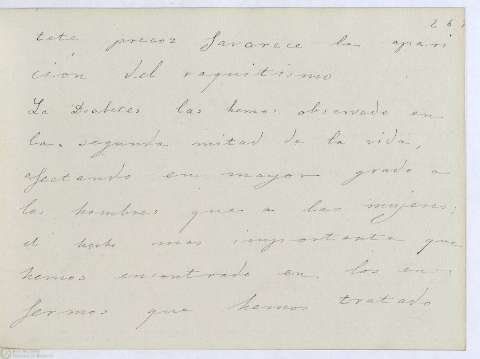 tete precoz favorece la apari
ción del raquitismo
La Diabetes las hemos observado en
la segunda mitad de la vida,
afectando en mayor grado a
los hombres que a las mujeres;
el hecho mas importante que
hemos encontrado en los en-
fermos que hemos tratado